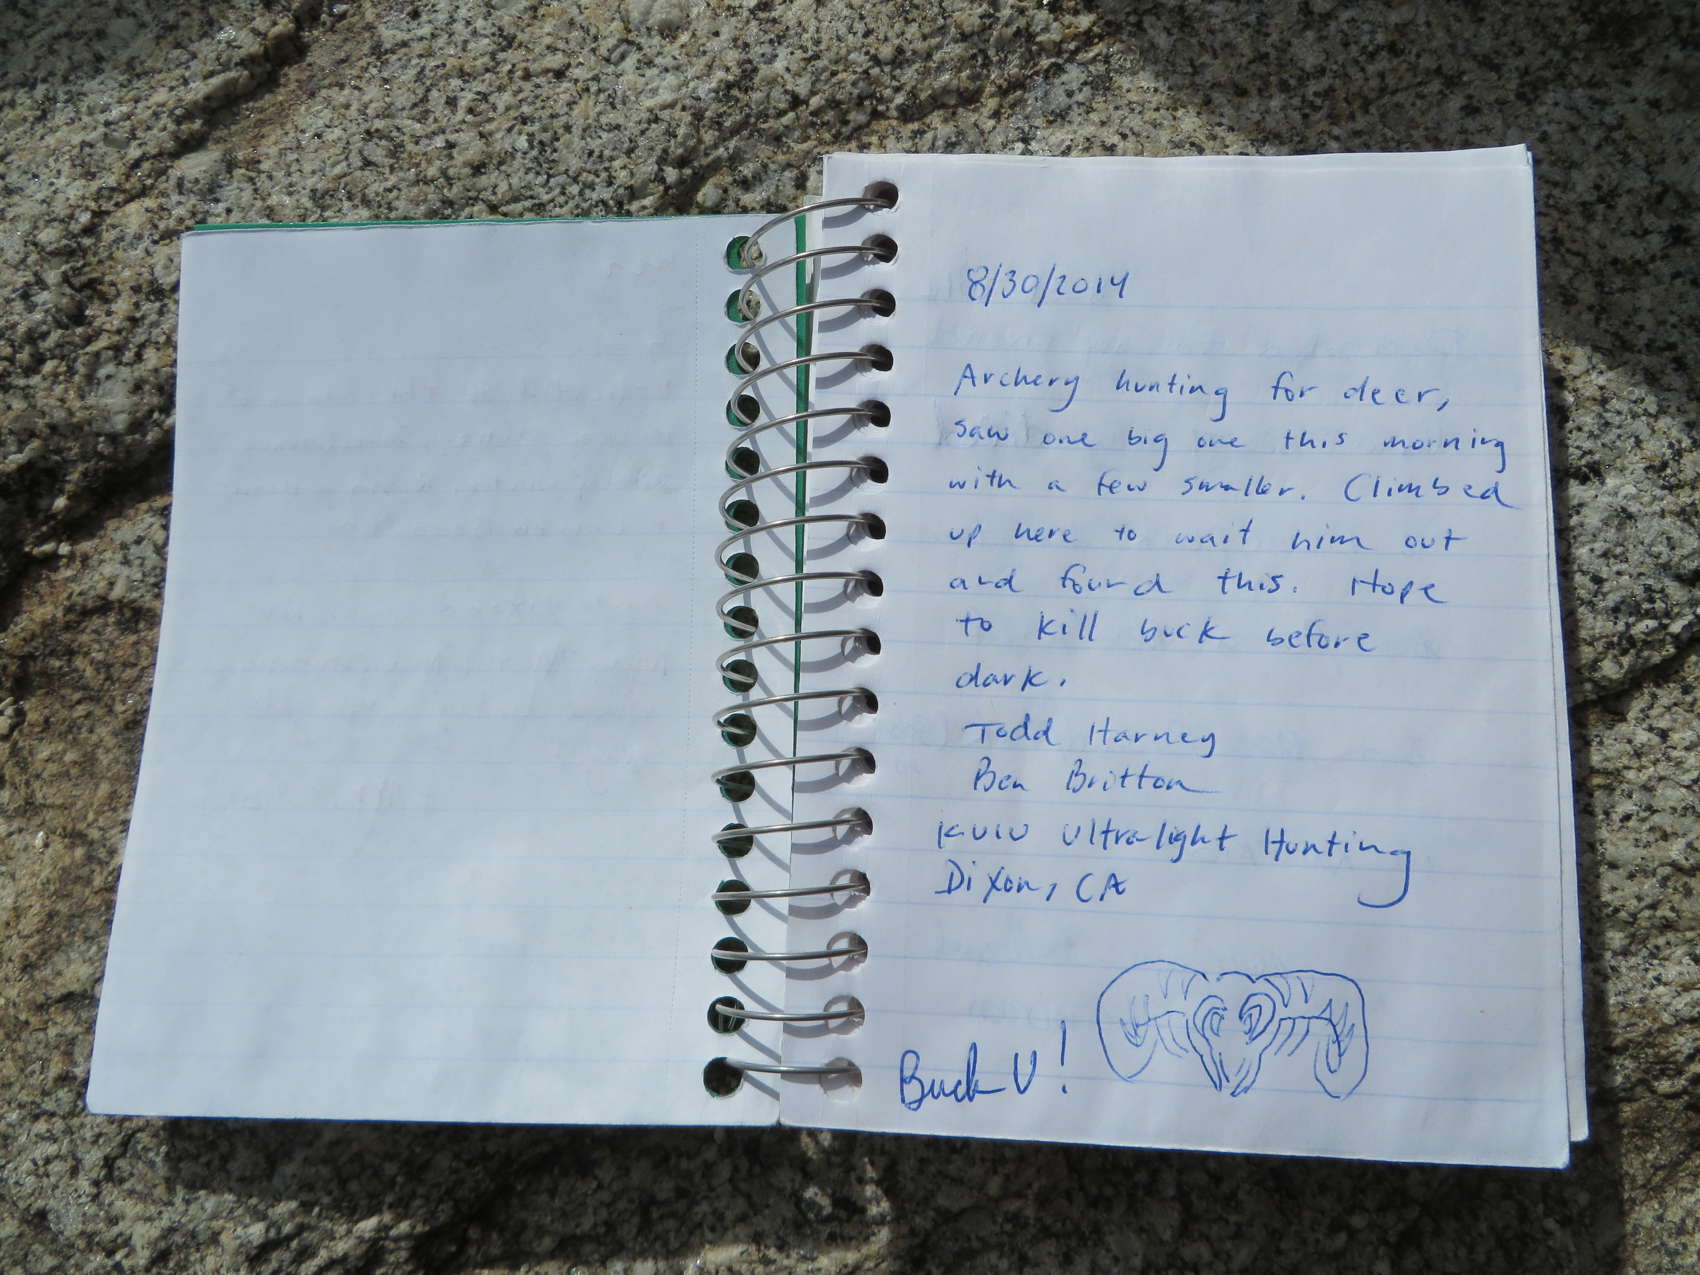 8/30/2014
Archery hunting for deer,
saw one big one this morning
with a few smaller. Climbed
up here to wait him out
and found this. Hope
to kill buck before
dark.
Todd Harney
Ben Britton
KUIU Ultralight Hunting
Dixon, CA
Buck U!